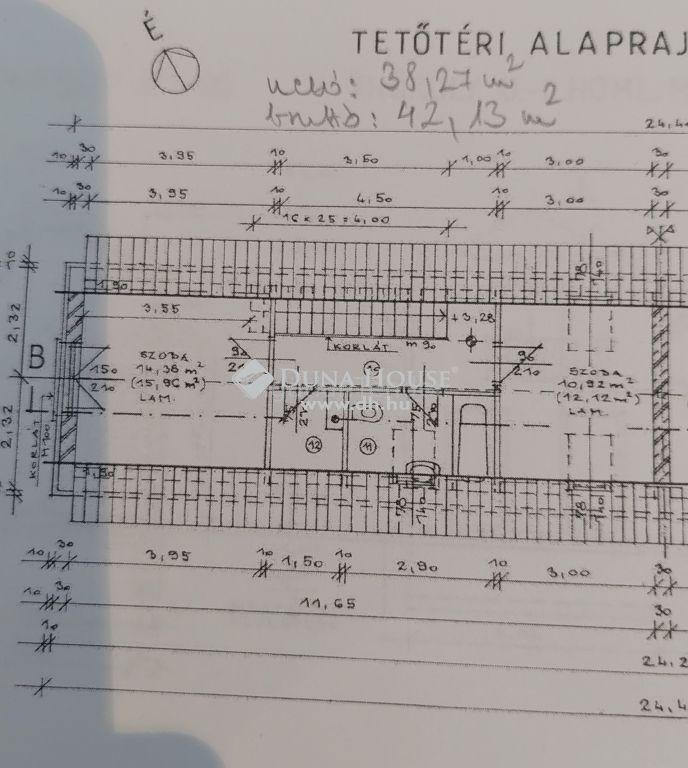 É
TETŐTÉRI ALAPRAJ
nettó: 38,27 m²
bruttó: 42,13 m²
24,4
10 30 3,95 10 3,50 1,00 10 3,00 30
10 30 3,95 10 4,50 10 3,00 30
16 x 25 = 4,00
10
1,90
78
140
3,55
+3,28
2,32
KORLÁT m 90
B
150
210
SZOBA
14,36 m²
(15,96 m²)
LAM.
90
10
96
210
SZOBA
10,92 m²
(12,12 m²)
LAM.
DUNA HOUSE®
www.dh.hu
75
75
12
11
2,32
KORLÁT
M 100
1,90
78
140
78
140
10 30 3,95 10 1,50 10 2,90 10 3,00 30
10 30 11,65 30
10 24,2
24,4